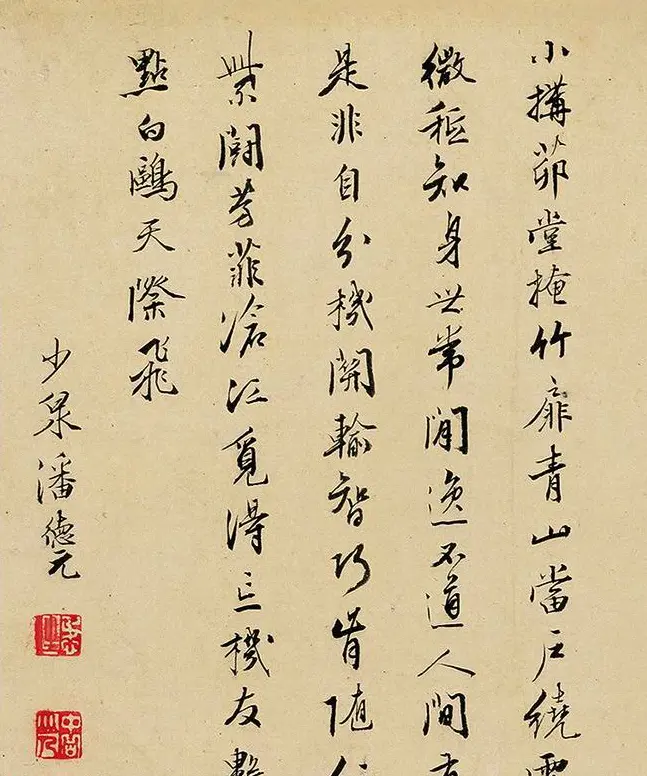 小搆茆堂掩竹扉青山當户繞
微秪知身世常閒逸不道人間
是非自分機關輸智巧肯隨
紫鬪芳菲滄江覓得忘機友
點白鷗天際飛
少泉潘德元